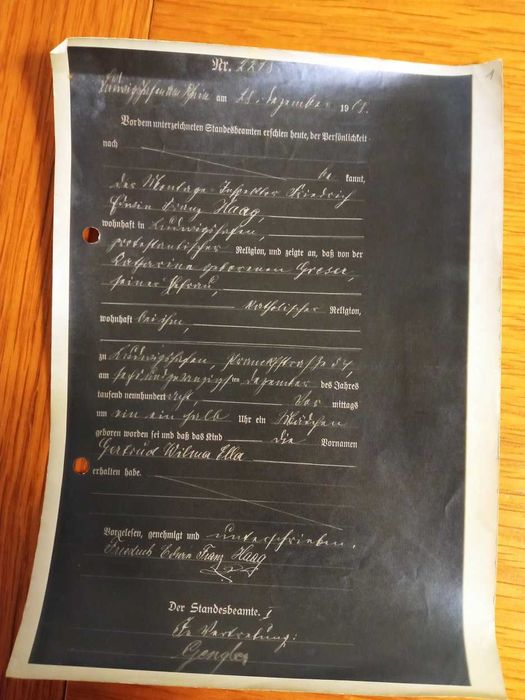 Nr. 2218
Ludwigshafen am Rhein am 28. Dezember 1908.
Vor dem unterzeichneten Standesbeamten erschien heute, der Persönlichkeit
nach
be kannt,
der Montage-Inspektor Friedrich
Edwin Franz Haag,
wohnhaft in Ludwigshafen,
protestantischer Religion, und zeigte an, daß von der
Katharina geborenen Greser,
seiner Ehefrau,
katholischer Religion,
wohnhaft bei ihm,
zu Ludwigshafen, Prankhstraße
am sechsundzwanzigsten Dezember des Jahres
tausend neunhundert acht, Vor mittags
um ein ein halb Uhr ein Mädchen
geboren worden sei und daß das Kind die Vornamen
Gertrud Wilma Ella
erhalten habe.
Vorgelesen, genehmigt und unterschrieben.
Friedrich Edwin Franz Haag
Der Standesbeamte.
In Vertretung:
Gengler